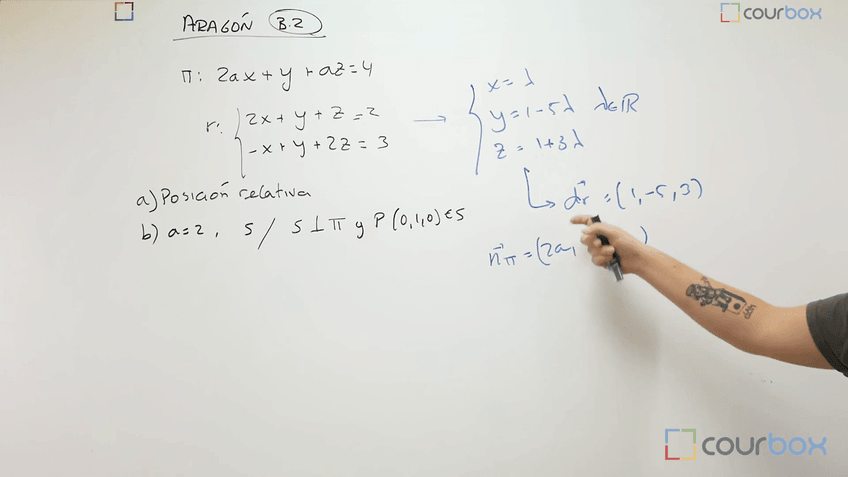 courbox
ARAGÓN B.2
π: 2ax + y + az = 4
r: { 2x + y + z = 2
-x + y + 2z = 3
→ { x = λ
y = 1 - 5λ λ∈ℝ
z = 1 + 3λ
a) Posición relativa
b) a = 2, s / s ⊥ π y P(0,1,0) ∈ s
↳ d⃗r = (1, -5, 3)
n⃗π = (2a, )
courbox